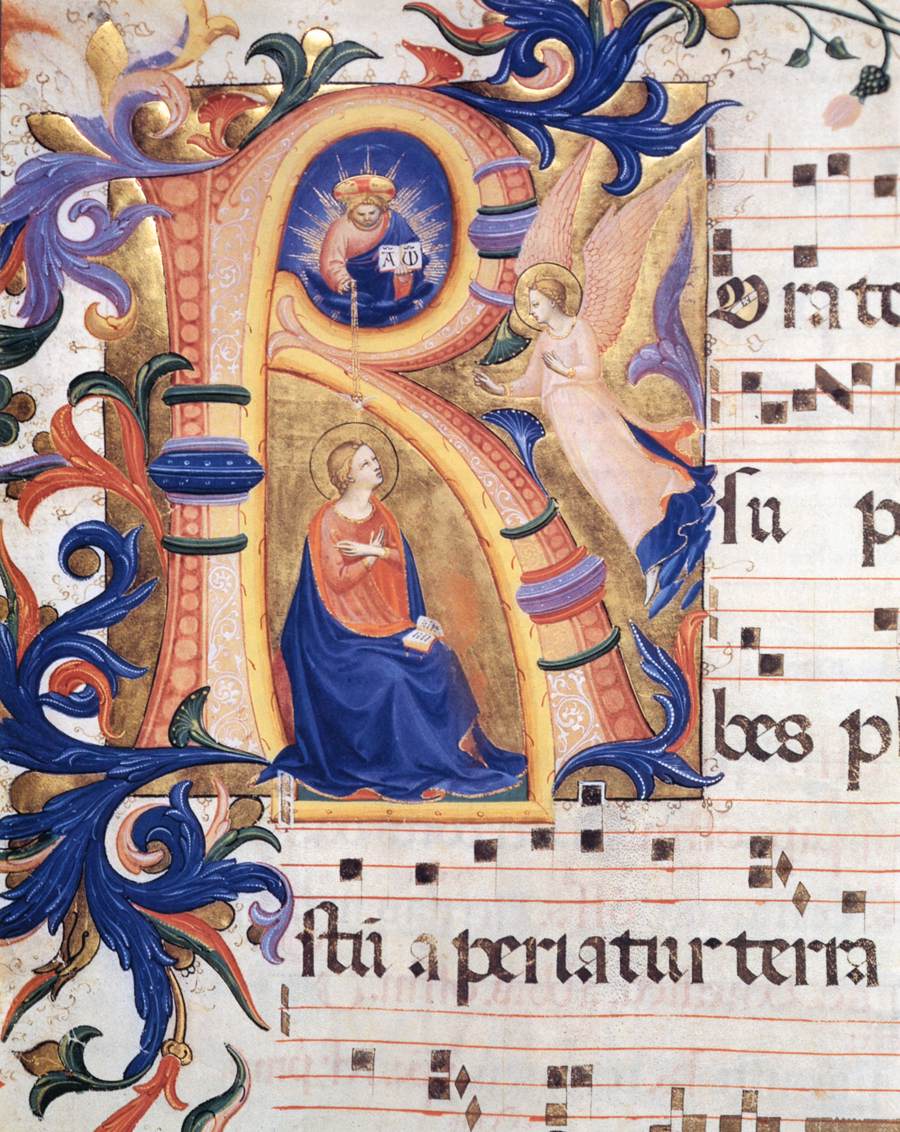 A Ω
R
Orate
ſu p
bes pl
ſtū aperiatur terra